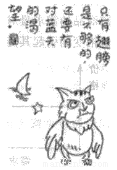 只有翅膀
是不够的·
还要有
对蓝天
的渴
望·